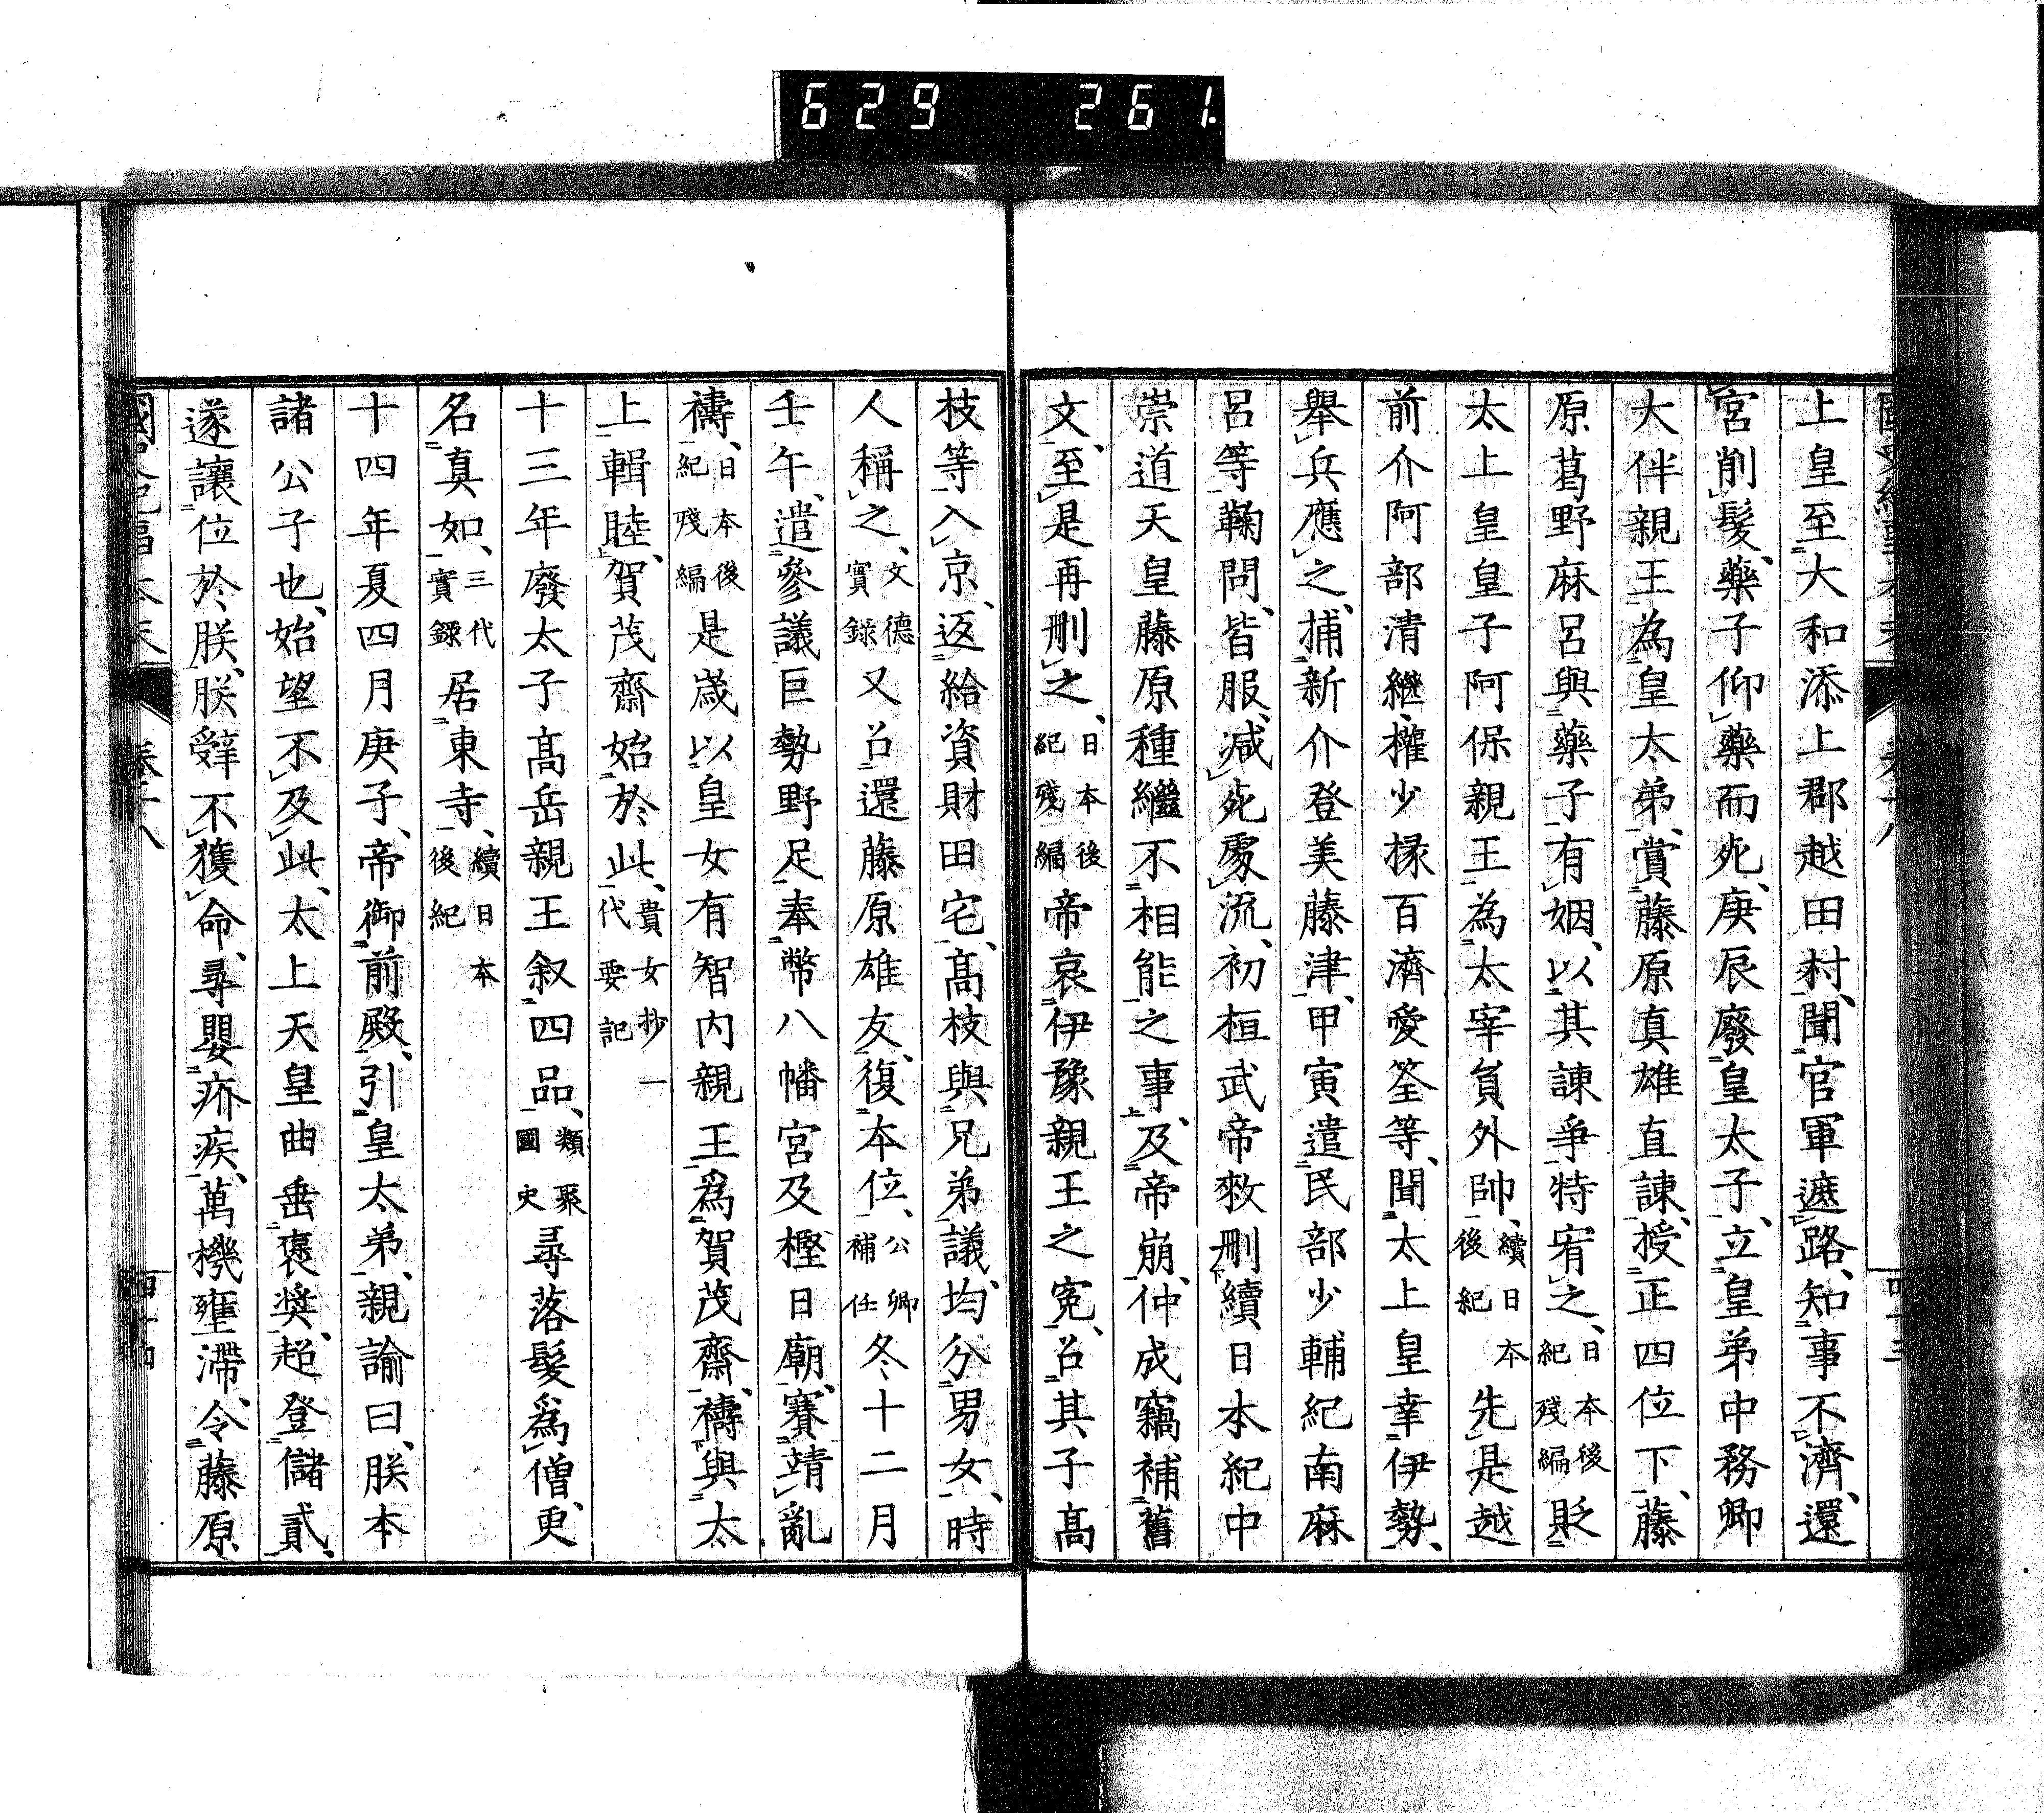 629 261.
上皇至大和添上郡越田村、聞官軍遮路、知事不濟、還
宮削髮、藥子仰藥而死、庚辰廢皇太子、立皇弟中務卿
大伴親王為皇太弟、賞藤原真雄直諫、授正四位下、藤
原葛野麻呂與藥子有姻、以其諫爭特宥之、日本後紀殘編貶
太上皇皇子阿保親王為太宰員外帥、續日本後紀先是越
前介阿部清繼、權少掾百濟愛筌等、聞太上皇幸伊勢、
舉兵應之、捕新介登美藤津、甲寅遣民部少輔紀南麻
呂等鞠問、皆服、減死處流、初桓武帝敕刪續日本紀中
崇道天皇藤原種繼不相能之事、及帝崩、仲成竊補舊
文、至是再刪之、日本後紀殘編帝哀伊豫親王之冤、召其子高
枝等入京、返給資財田宅、高枝與兄弟議、均分男女、時
人稱之、文德實錄又召還藤原雄友、復本位、公卿補任冬十二月
壬午、遣參議巨勢野足奉幣八幡宮及樫日廟、賽靖亂
禱、日本後紀殘編是歲以皇女有智內親王爲賀茂齋、禱與太
上輯睦、賀茂齋始於此、貴女抄一代要記
十三年廢太子高岳親王叙四品、類聚國史尋落髮爲僧、更
名真如、三代實錄居東寺、續日本後紀
十四年夏四月庚子、帝御前殿、引皇太弟、親諭曰、朕本
諸公子也、始望不及此、太上天皇曲垂褒奬、超登儲貳、
遂讓位於朕、朕辭不獲命、尋嬰疥疾、萬機壅滯、令藤原